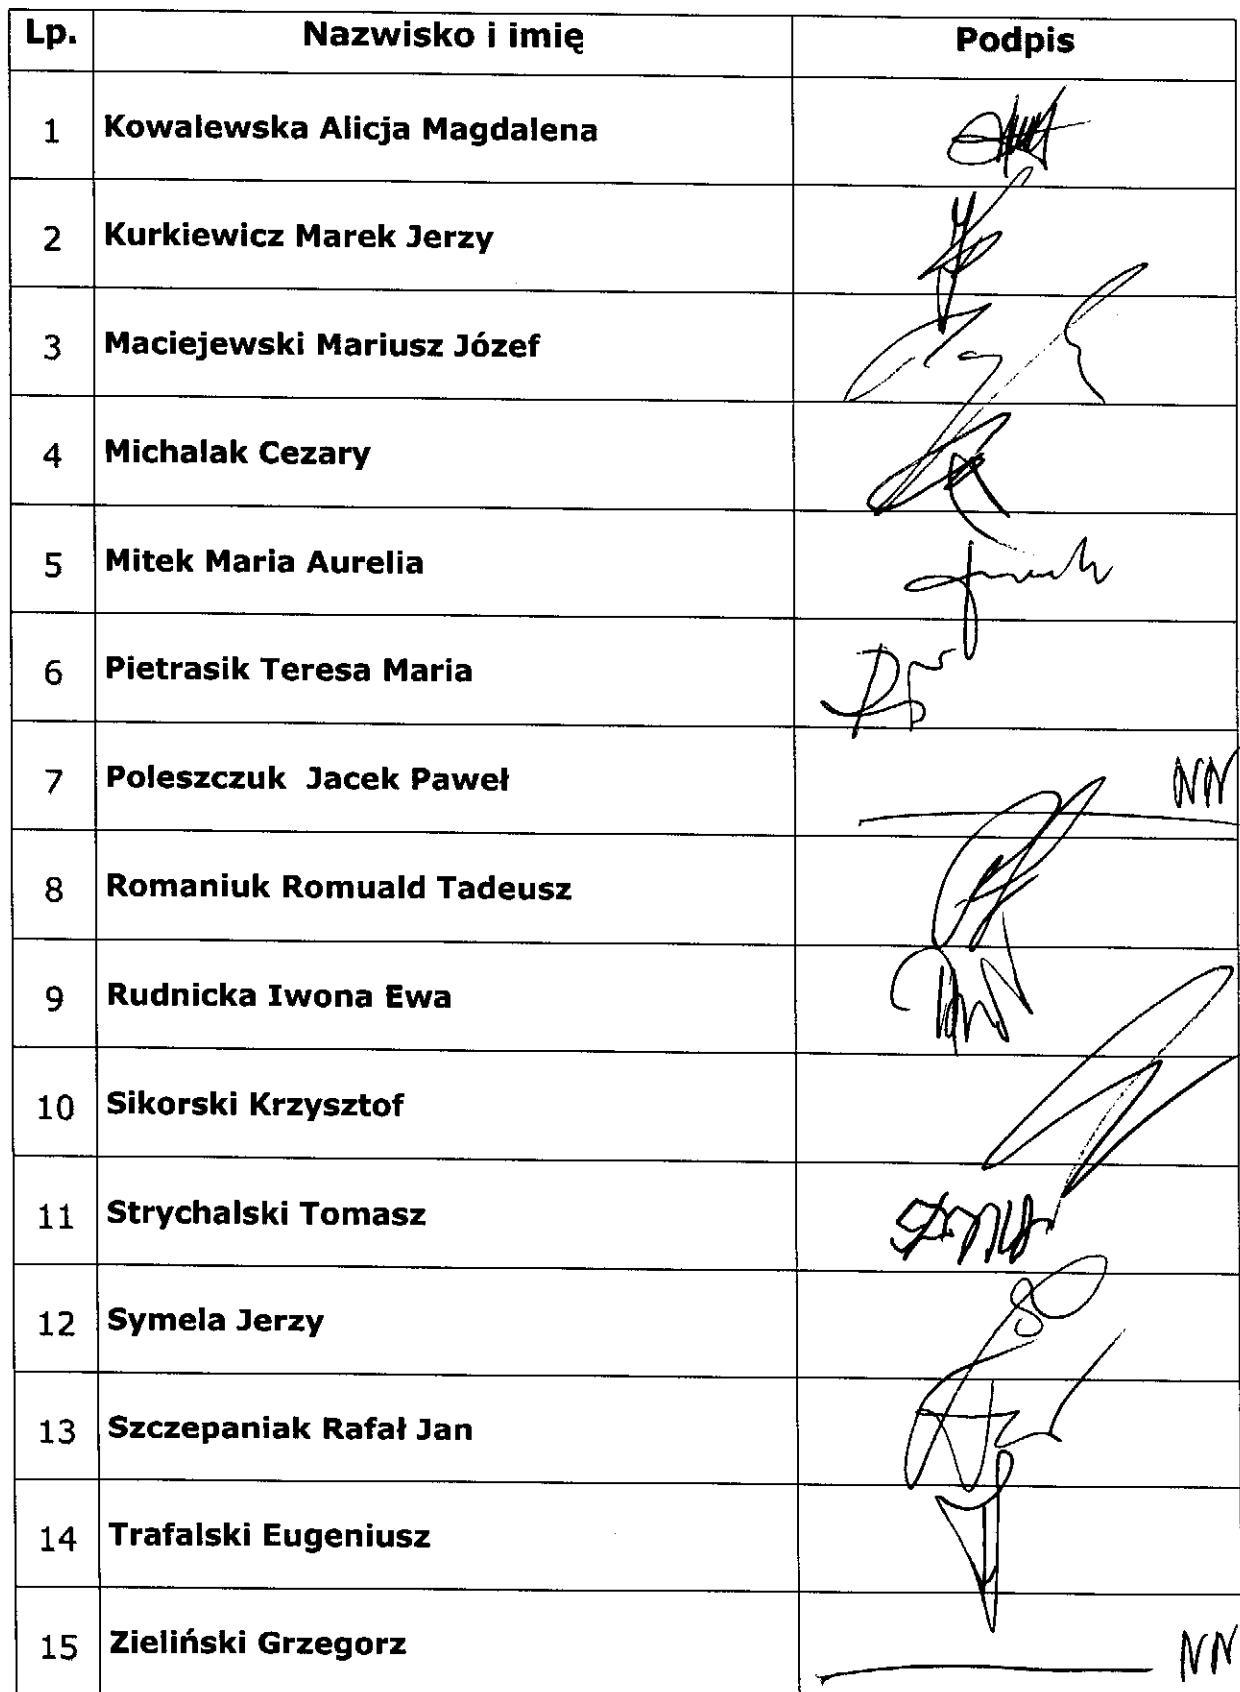 Lp. Nazwisko i imię Podpis
1 Kowalewska Alicja Magdalena
2 Kurkiewicz Marek Jerzy
3 Maciejewski Mariusz Józef
4 Michalak Cezary
5 Mitek Maria Aurelia
6 Pietrasik Teresa Maria
7 Poleszczuk Jacek Paweł NN
8 Romaniuk Romuald Tadeusz
9 Rudnicka Iwona Ewa
10 Sikorski Krzysztof
11 Strychalski Tomasz
12 Symela Jerzy
13 Szczepaniak Rafał Jan
14 Trafalski Eugeniusz
15 Zieliński Grzegorz NN